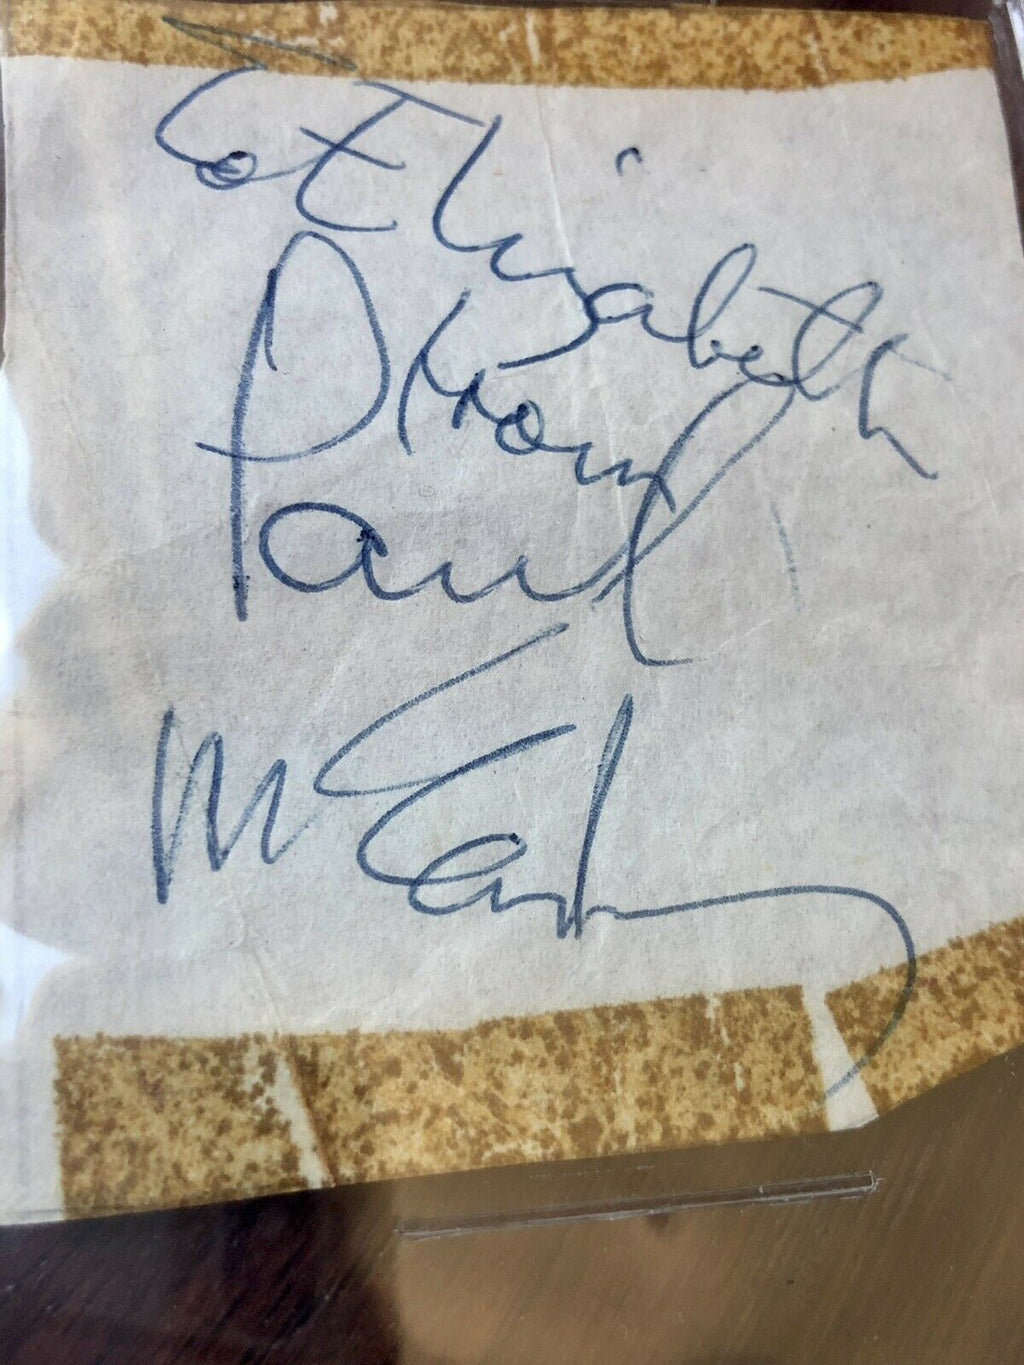 To Elizabeth
from
Paul
McCartney